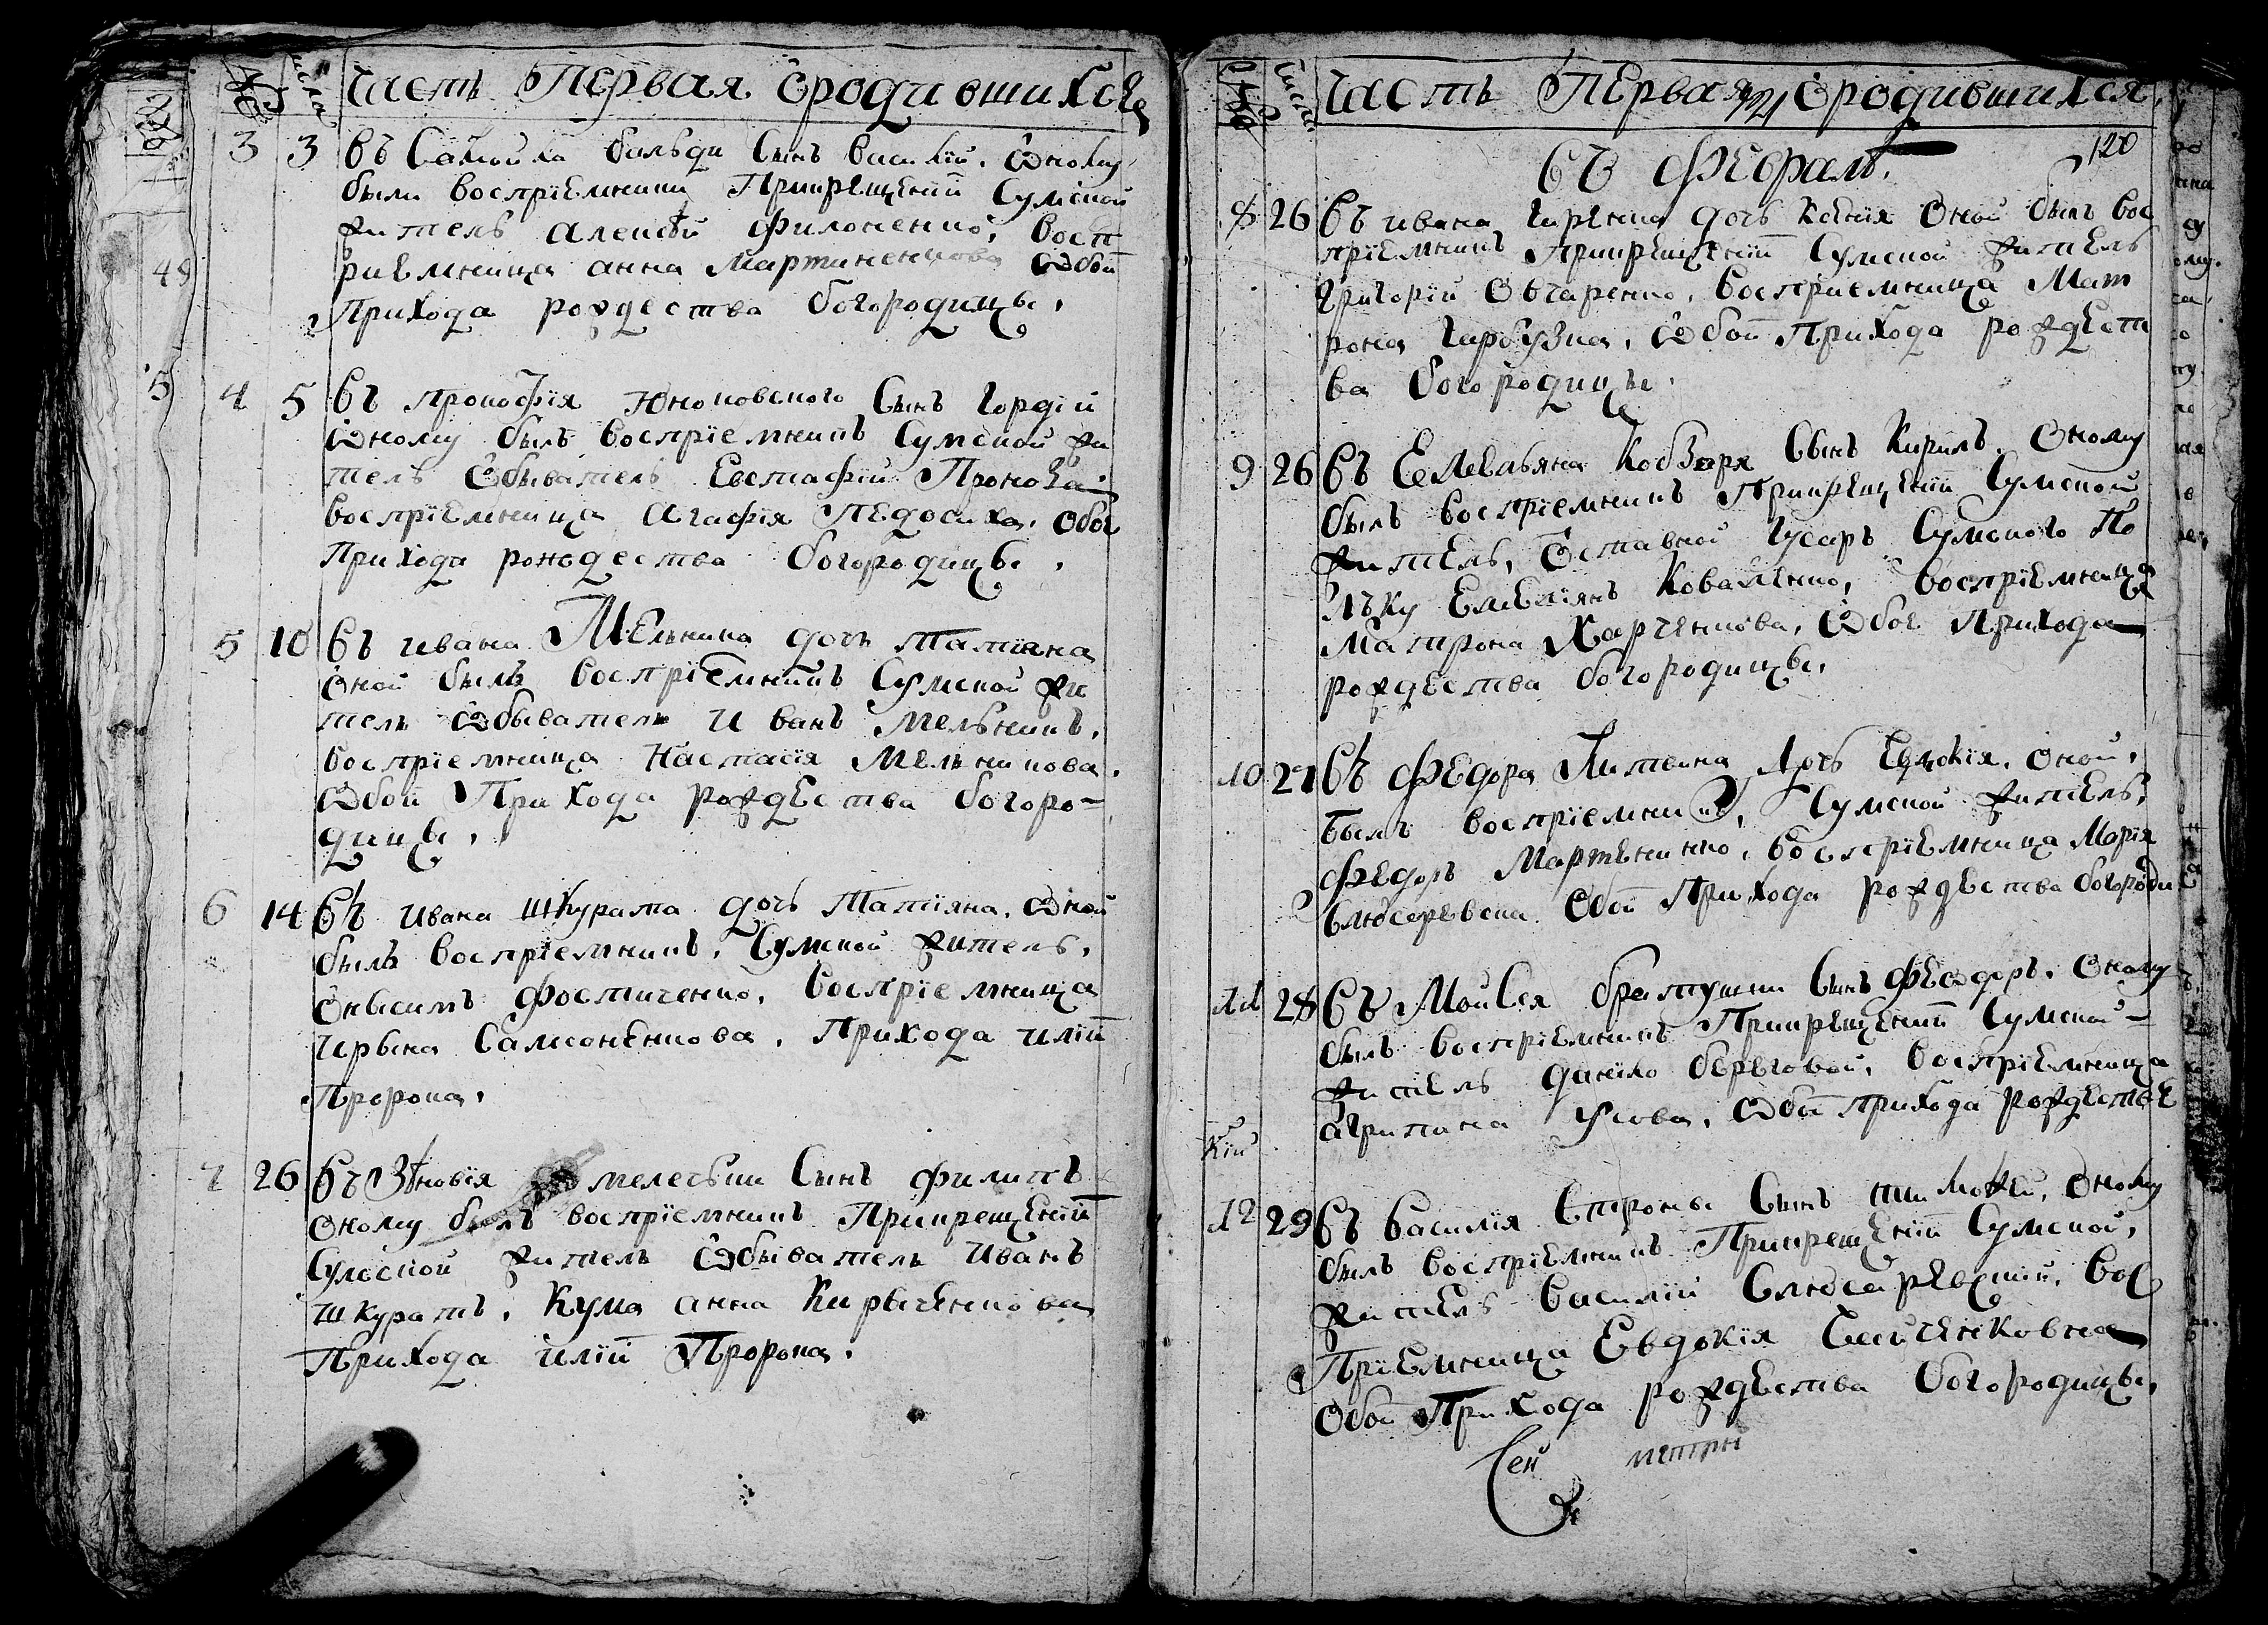 Часть Первая Ородившихся
3 3 Въ Самойла бальди Сынъ василій. Оному
были воспріемники Прикрещеніи Сумской
житель Алексѣй Филоненко, восп
риемница анна Мартиненкова Обои
Прихода рождества богородицы.
4 5 Въ прокофія Сынъ Гордій
Оному былъ воспріемникъ Сумской жи
тель Обыватель Евстафій
воспріемница Агафія Педосиха, Обои
Прихода рождества богородицы.
5 10 Въ ивана Мельника дочь татіяна
Оной былъ воспріемникъ Сумской жи
тель Обыватель Иванъ мельникъ,
воспріемница Настасія Мельникова.
Обои Прихода рождества богоро-
дицы.
6 14 Въ ивана шкурата дочь Татіяна. Оной
былъ воспріемникъ, Сумской житель,
Онисимъ Фостиченко, воспріемница
Ирына Самсоненкова, Прихода иліи
Пророка.
7 26 Въ Зѣновія мелешки Сынъ филипъ
Оному былъ воспріемникъ Прикрещеніи
Сумской житель Обыватель Иванъ
шкуратъ, Кума анна Кирыченкова
Прихода иліи Пророка.
Часть Первая Ородившихся,
120
Въ Февралѣ.
8 26 Въ ивана дочь Ксенія Оной былъ вос
пріемникъ Прикрещеніи Сумской житель
Григорій Овчаренко, восприемница Мат
рона Гарбузка, Обои Прихода рождест
ва богородицы.
9 26 Въ Емельяна Кобзаря Сынъ Кирилъ. Оному
былъ воспріемникъ Прикрещеніи Сумской
житель, Оставной Гусаръ Сумского По
лъку Емеліянъ Коваленко, воспріемница
Матрона Харченкова, Обои Прихода
рождества богородицы.
10 27 Въ Федора Литвина Дочь Евдокія, Оной,
былъ воспріемникъ, Сумской житель,
Федоръ Мартененко, воспріемница Марія
Слюсеревска Обои Прихода рождества богороди
11 28 Въ Мойсея братушки Сынъ Феодоръ. Оному
былъ воспріемникъ Прикрещеніи Сумской-
житель данило береговой, воспріемница
агрипина Усова, Обои прихода рождестве
12 29 Въ Василія Сынъ тимофей, Оному
былъ воспріемникъ Прикрещеніи Сумской,
житель Василій Слюсаревскій, вос
Пріемница Евдокія
Обои Прихода рождества богородицы,